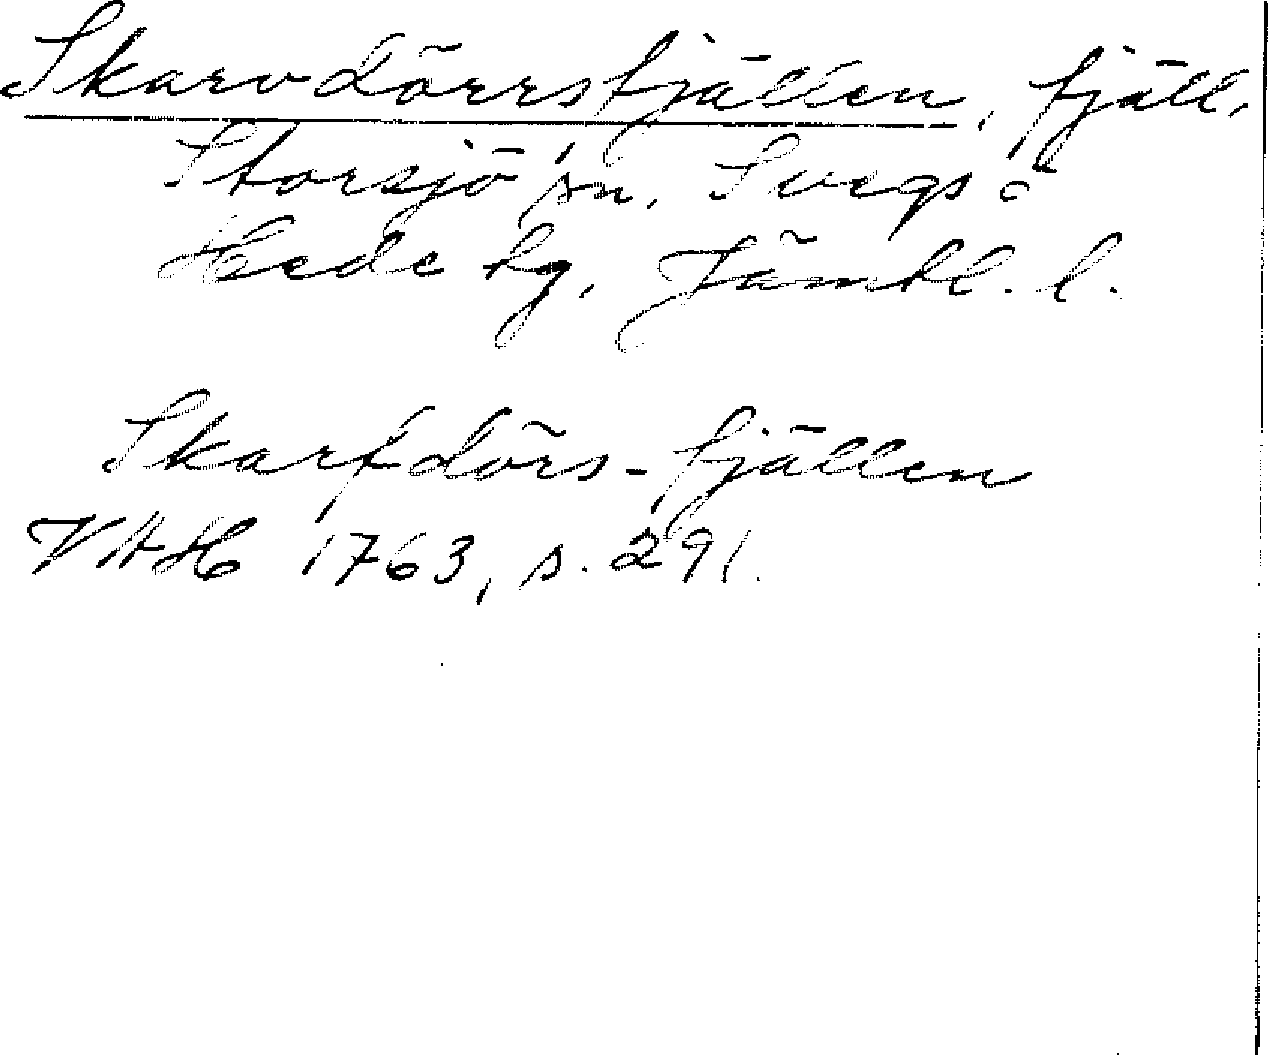 Skarvdörrsfjällen, fjäll,
Storsjö sn, Svegs o
Hede tg, Jämtl. l.
Skarfdörs-fjällen
VAH 1763, s. 291.